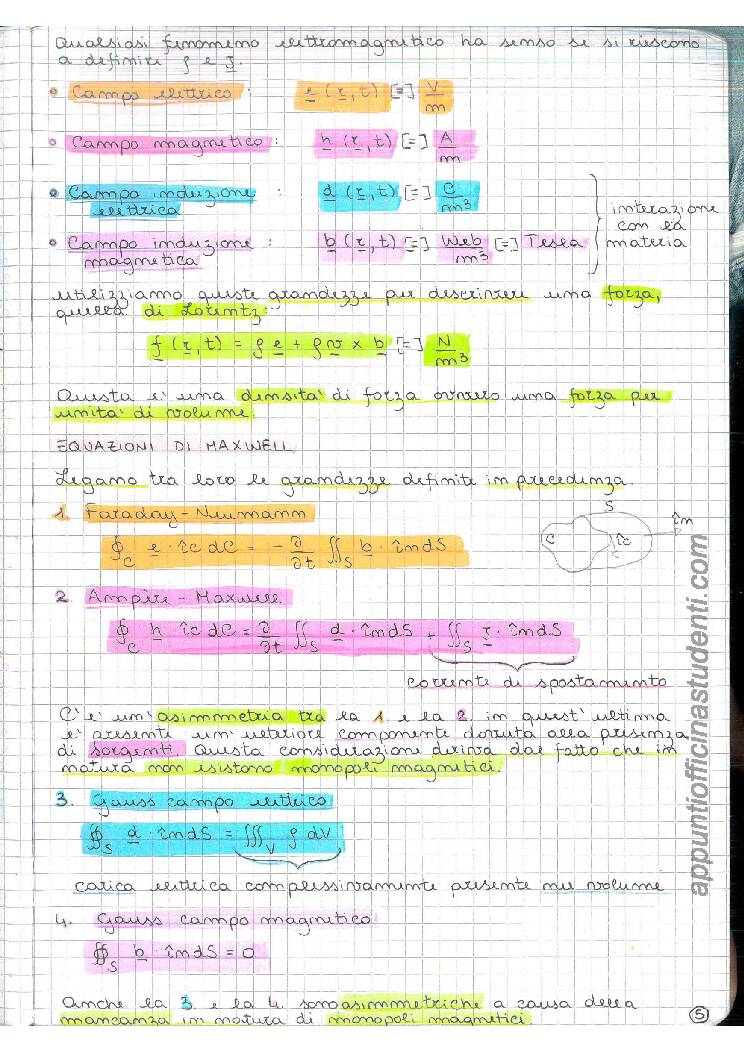 Qualsiasi fenomeno elettromagnetico ha senso se si riescono
a definire ρ e J.
• Campo elettrico : e (r, t) [=] V/m
• Campo magnetico : h (r, t) [=] A/m
• Campo induzione elettrica : d (r, t) [=] C/m³
• Campo induzione magnetica : b (r, t) [=] Web/m³ [=] Tesla
interazione
con la
materia
utilizziamo queste grandezze per descrivere una forza,
quella di Lorentz:
f (r, t) = ρ e + ρ v × b [=] N/m³
Questa e' una densita' di forza ovvero una forza per
unita' di volume.
EQUAZIONI DI MAXWELL
Legano tra loro le grandezze definite in precedenza.
1. Faraday - Neumann
∮_C e · îc dC = - ∂/∂t ∬_S b · în dS
S
în
C
îc
2. Ampère - Maxwell
∮_C h · îc dC = ∂/∂t ∬_S d · în dS + ∬_S J · în dS
corrente di spostamento
C'e' un'asimmetria tra la 1 e la 2. in quest'ultima
e' presente un ulteriore componente dovuta alla presenza
di sorgenti. Questa considerazione deriva dal fatto che in
natura non esistono monopoli magnetici.
3. Gauss campo elettrico
∯_S d · în dS = ∭_V ρ dV
carica elettrica complessivamente presente nel volume
4. Gauss campo magnetico
∯_S b · în dS = 0
Anche la 3. e la 4. sono asimmetriche a causa della
mancanza in natura di monopoli magnetici.
5
appuntiofficinastudenti.com